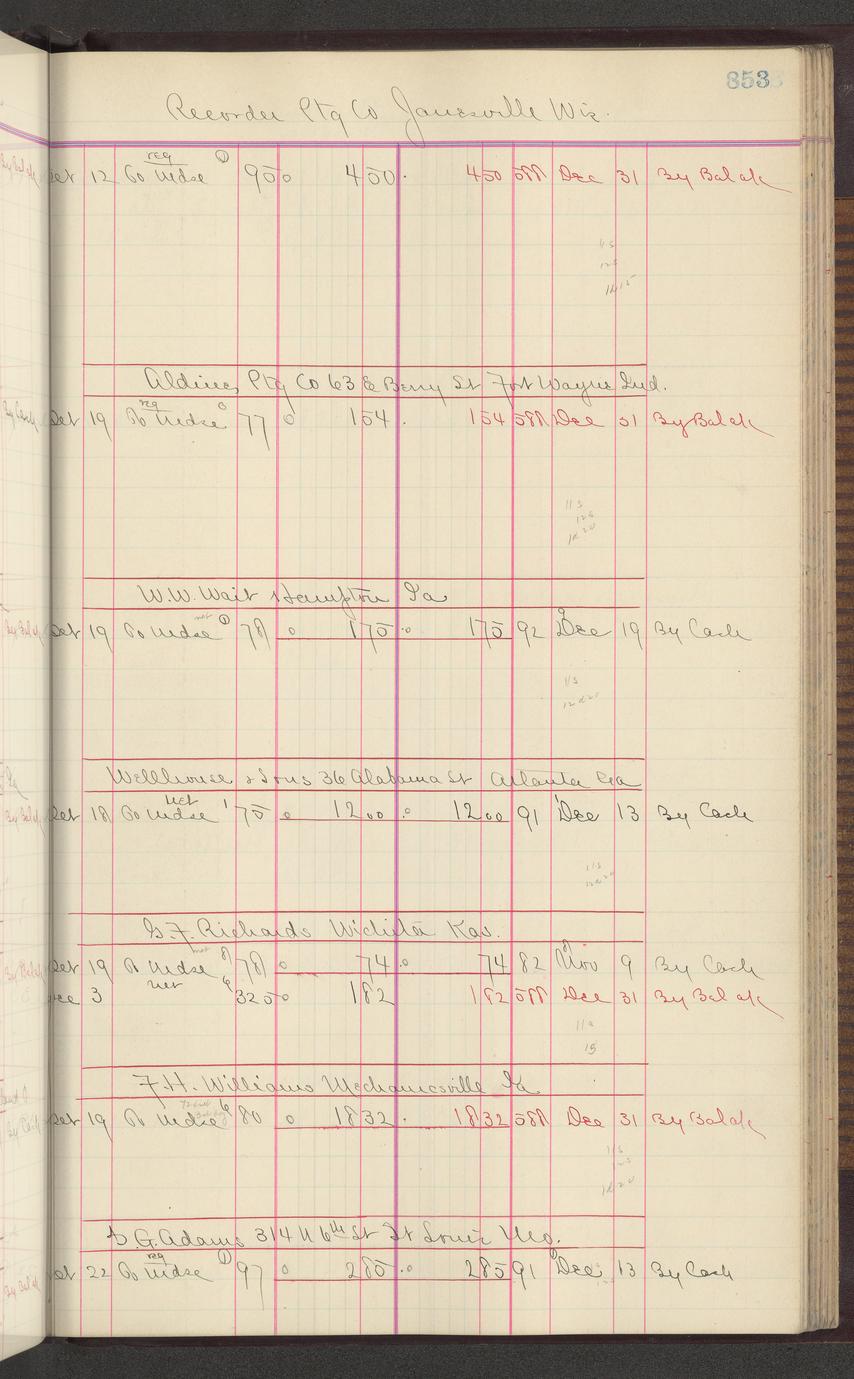 853
Recorder Ptg Co Janesville Wis.
req
Oct 12 To Mdse 95 450 450 588 Dec 31 By Bal ak
Aldine Ptg Co 63 E Berry St Fort Wayne Ind.
req
Oct 19 To Mdse 77 154 154 588 Dec 31 By Bal ak
W.W. Wait Hampton Ia
net
Oct 19 To Mdse 78 175 175 92 Dec 19 By Cash
Wellhouse & Sons 36 Alabama St Atlanta Ga
net
Oct 18 To Mdse 75 1200 1200 91 Dec 13 By Cash
G.F. Richards Wichita Kas.
net
Oct 19 To Mdse 78 74 74 82 Nov 9 By Cash
Dec 3 net 325 182 182 588 Dec 31 By Bal ak
F.H. Williams Mechanicsville Ia
Oct 19 To Mdse 80 1832 1832 588 Dec 31 By Bal ak
S.G. Adams 314 N 6th St St Louis Mo.
req
Oct 22 To Mdse 97 285 285 91 Dec 13 By Cash